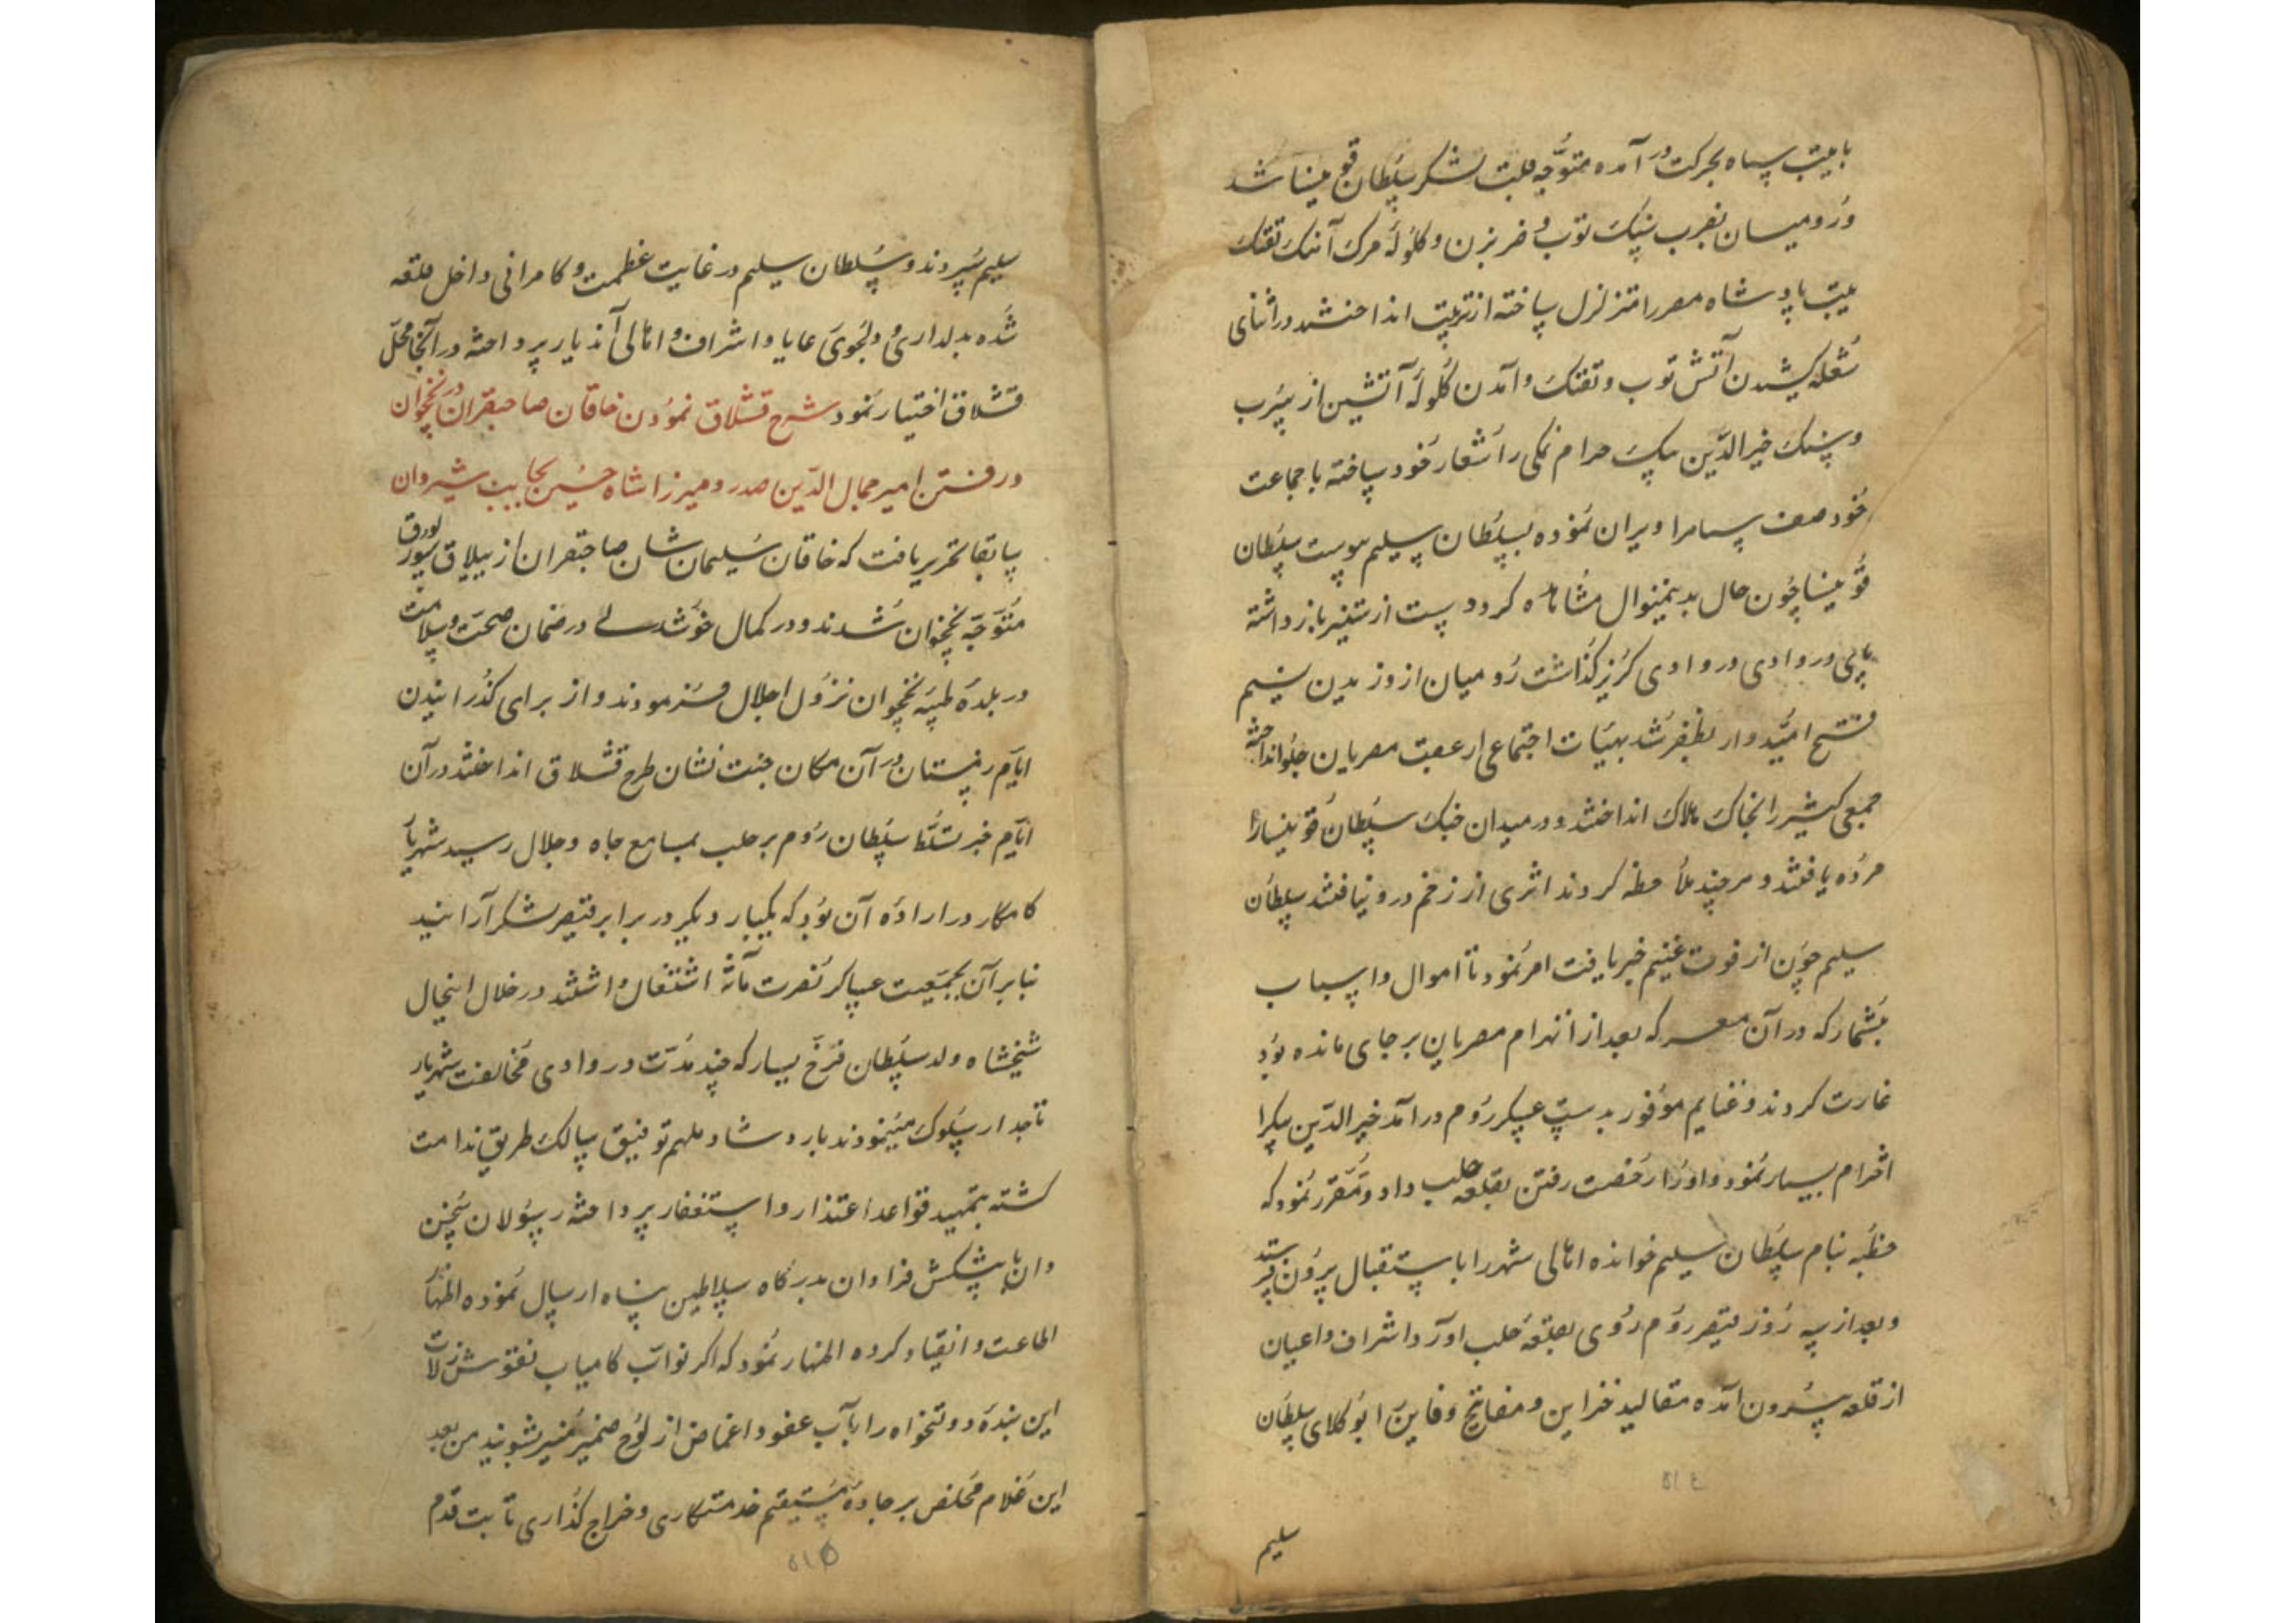 با هیبت سپاه بحرکت در آمده متوجه قلب لشکر سلطان قوینسا شد
و رومیان بضرب سنک توپ و ضربزن و کلوله مرک آهنک تفنک
هیبت پادشاه مصر را متزلزل ساخته از ترتیب انداختند در اثنای
شعله کشیدن آتش توپ و تفنک و آمدن کلوله آتشین از سرب
و سنک خیر الدین بیک حرام نمکی را شعار خود ساخته با جماعت
خود صف سپاه را ویران نموده بسلطان سلیم پیوست سلطان
قوینسا چون حال بدینمنوال مشاهده کرد دست از ستیز باز داشته
پای در وادی در وادی کریز کذاشت رومیان از وزیدن نسیم
فتح امیدوار بظفر شد بهیات اجتماعی از عقب مصریان جلو انداخته
جمعی کثیر را بخاک هلاک انداختند و در میدان جنک سلطان قوینسا را
مرده یافتند و هر چند ملاحظه کردند اثری از زخم درو نیافتند سلطان
سلیم چون از فوت غنیم خبر یافت امر نمود تا اموال و اسباب
بیشمار که در آن معرکه بعد از انهزام مصریان بر جای مانده بود
غارت کردند و غنایم موفور بدست عسکر روم در آمد خیر الدین بیک را
احترام بسیار نمود و او را رخصت رفتن بقلعه حلب داد و مقرر نمود که
خطبه بنام سلطان سلیم خوانده اهالی شهر را باستقبال بیرون فرستد
و بعد از سه روز قیصر روم روی بقلعه حلب آورد و اشراف و اعیان
از قلعه بیرون آمده مقالید خزاین و مفاتیح دفاین را بوکلای سلطان
۵۱۴
سلیم
سلیم سپردند و سلطان سلیم در غایت عظمت و کامرانی داخل قلعه
شده بدلداری و دلجوی رعایا و اشراف و اهالی آندیار پرداخته در آنجا محل
قشلاق اختیار نمود شرح قشلاق نمودن خاقان صاحبقران در نخچوان
و رفتن امیر جمال الدین صدر و میرزا شاه حسین بجانب شیروان
سابقا تحریر یافت که خاقان سلیمان شان صاحبقران از ییلاق سورلق
متوجه نخچوان شدند و در کمال خوشدلی در ضمان صحت و سلامت
در بلده طیبه نخچوان نزول اجلال فرمودند و از برای کذرانیدن
ایام زمستان در آن مکان جنت نشان طرح قشلاق انداختند در آن
ایام خبر تسلط سلطان روم بر حلب بمسامع جاه و جلال رسید شهریار
کامکار در اراده آن بود که یکبار دیکر در برابر قیصر لشکر آرا نید
بنابر آن بجمعیت عساکر نصرت مآثر اشتغال داشتند در خلال اینحال
شیخشاه ولد سلطان فرخ یسار که چند مدت در وادی مخالفت شهریار
تاجدار سلوک مینمودند بارشاد ملهم توفیق سالک طریق ندامت
کشته بتمهید قواعد اعتذار و استغفار پرداخته رسولان سخن
دان با پیشکش فراوان بدرکاه سلاطین پناه ارسال نموده اظهار
اطاعت و انقیاد کرده اظهار نمود که اکر نواب کامیاب نقوش زلات
این بنده دولتخواه را بآب عفو و اغماض از لوح ضمیر منیر شویند من بعد
این غلام مخلص بر جاده مستقیم خدمتکاری و خراج کذاری ثابت قدم
۵۱۵